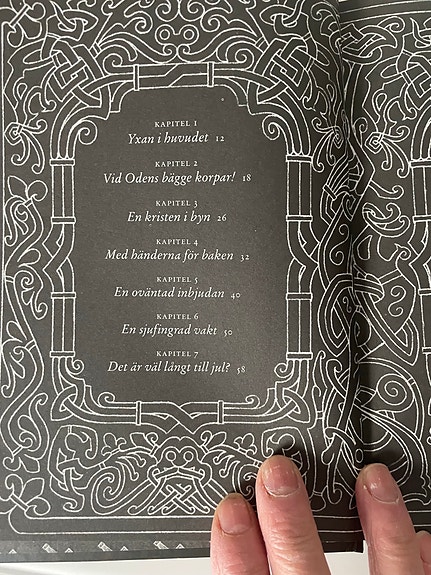 KAPITEL 1
Yxan i huvudet 12
KAPITEL 2
Vid Odens bägge korpar! 18
KAPITEL 3
En kristen i byn 26
KAPITEL 4
Med händerna för baken 32
KAPITEL 5
En oväntad inbjudan 40
KAPITEL 6
En sjufingrad vakt 50
KAPITEL 7
Det är väl långt till jul? 58